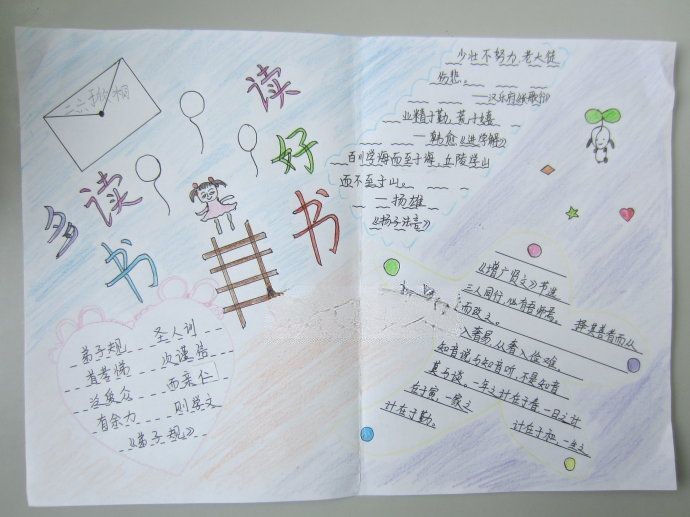 多读书
读好书
弟子规 圣人训
首孝悌 次谨信
泛爱众 而亲仁
有余力 则学文
《弟子规》
少壮不努力,老大徒
伤悲。
——汉乐府《长歌行》
业精于勤,荒于嬉
—韩愈《进学解》
百川学海而至于海,丘陵学山
而不至于山。
—— 扬雄
《扬子法言》
《增广贤文》节选
三人同行,必有吾师焉。 择其善者而从
而改之。
入奢易,从奢入俭难。
知音说与知音听,不是知音
莫与谈。一年之计在于春一日之计
在于寅,一家之
计在于和 一生之
计在于勤。